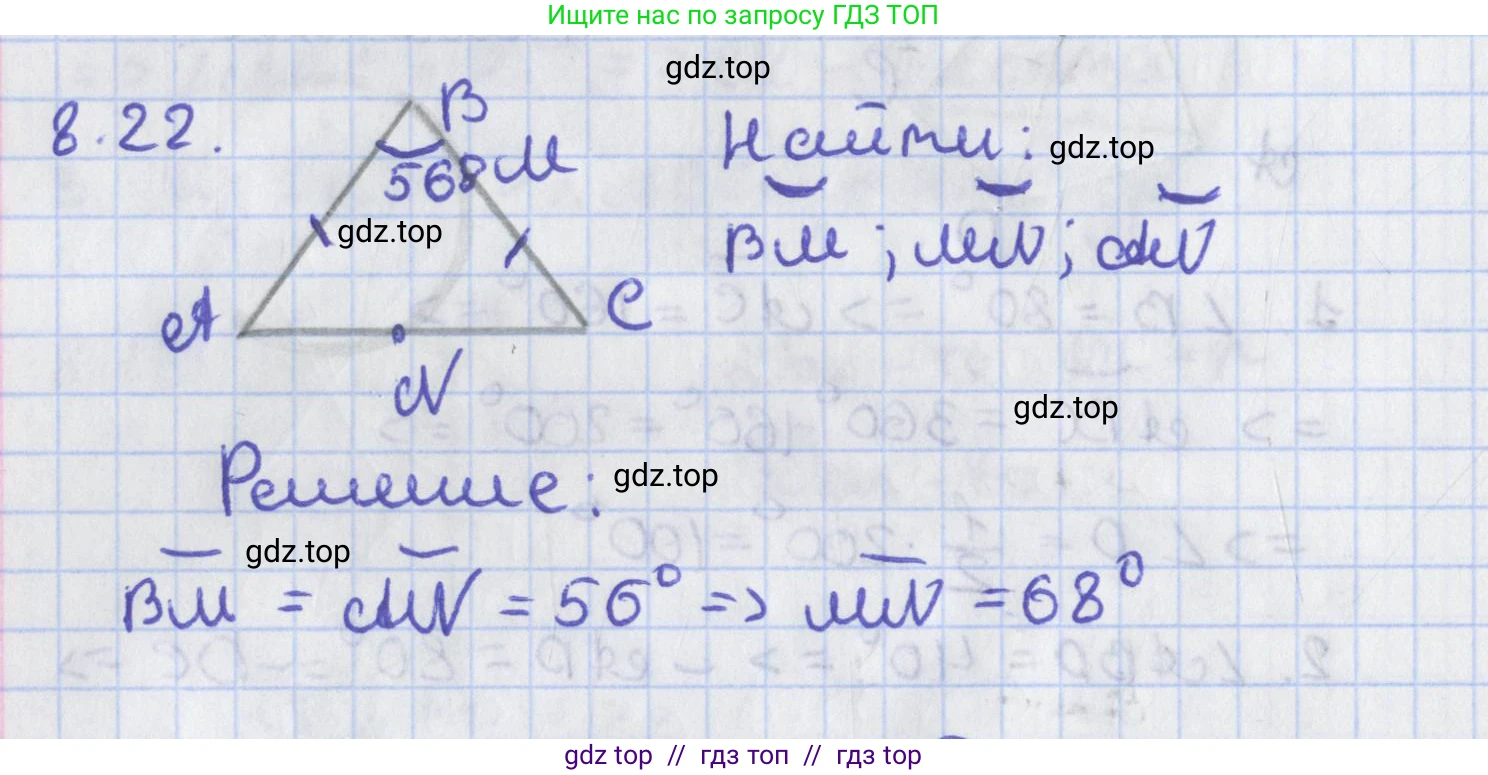 Ищите нас по запросу ГДЗ ТОП
gdz.top
8.22.
B
56° M
Найти:
gdz.top
gdz.top
BM; MN; AN
A
C
N
gdz.top
Решение:
gdz.top
gdz.top
BM = AN = 56° => MN = 68°
gdz top // гдз топ // гдз top